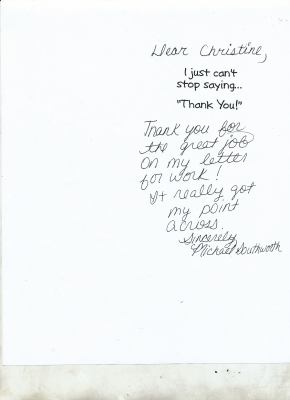 Dear Christine,
I just can't
stop saying...
"Thank You!"
Thank you for
the great job
on my letter
for work!
It really got
my point
across.
Sincerely
Michael Southworth